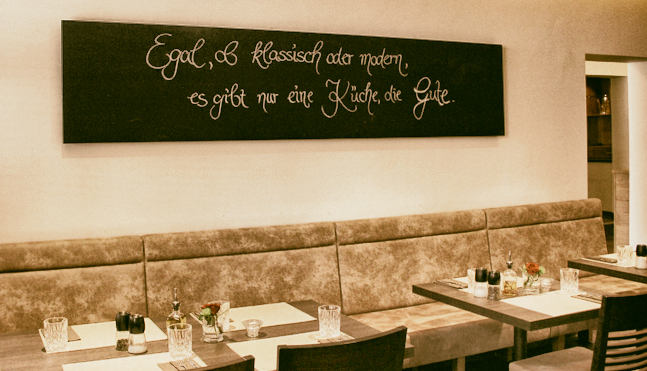 Egal, ob klassisch oder modern,
es gibt nur eine Küche, die Gute.